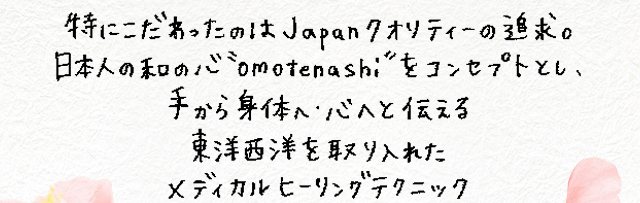 特にこだわったのはJapanクオリティーの追求。
日本人の和の心“omotenashi”をコンセプトとし、
手から身体へ・心へと伝える
東洋西洋を取り入れた
メディカルヒーリングテクニック